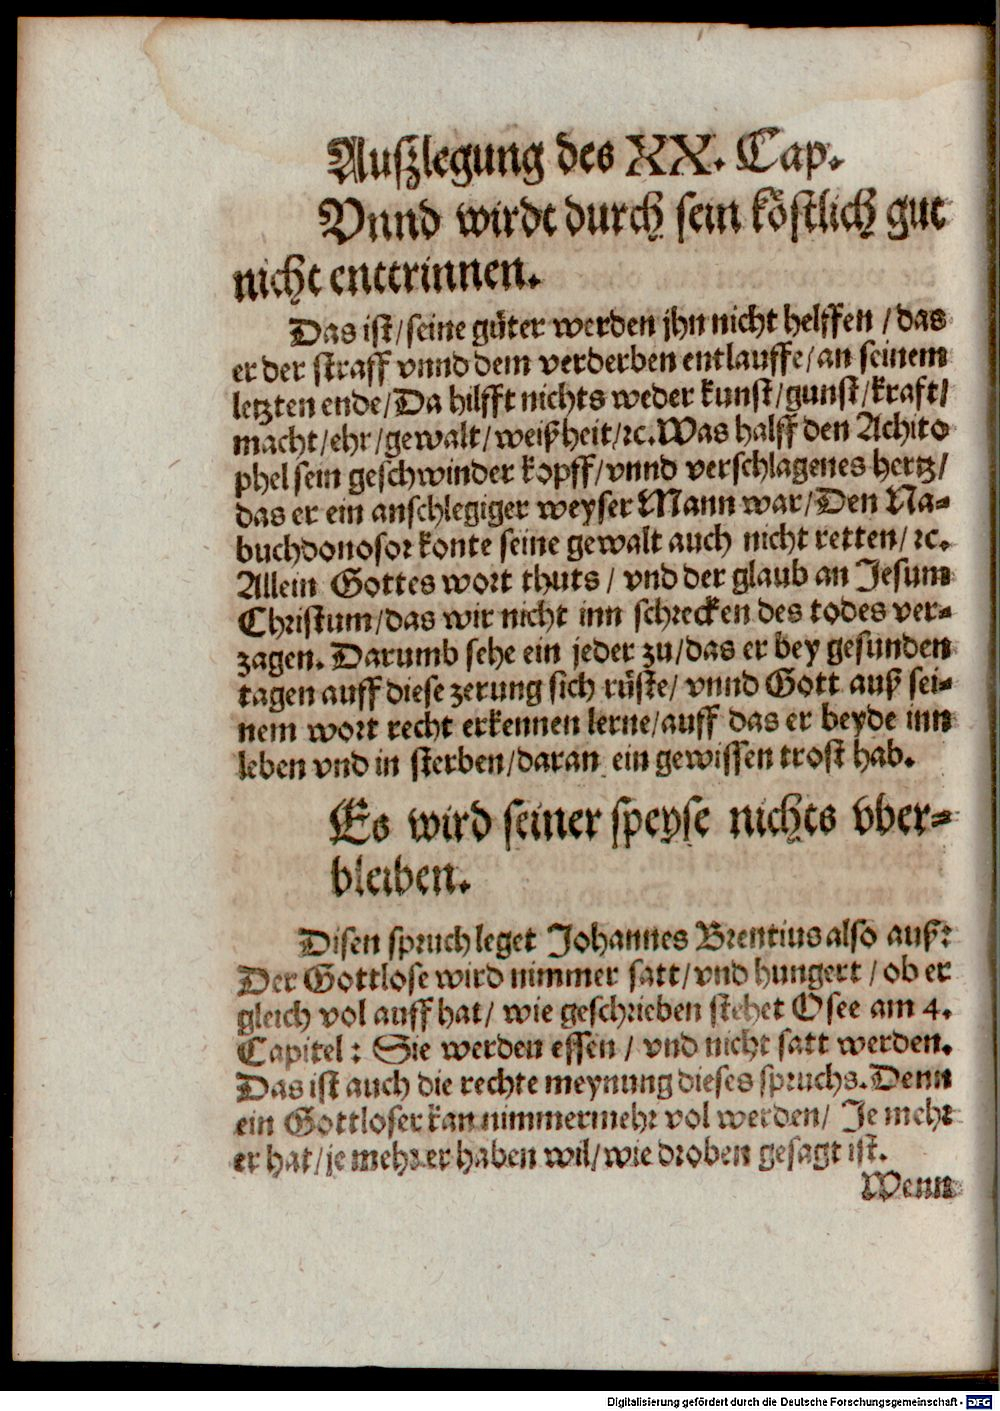 Auſzlegung des XX. Cap.
Vnnd wirdt durch ſein köſtlich gut
nicht enttrinnen.
Das iſt/ſeine güter werden jhn nicht helffen /das
er der ſtraff vnnd dem verderben entlauffe/an ſeinem
letzten ende/Da hilfft nichts weder kunſt/gunſt/kraft/
macht/ehr/gewalt/weißheit/ꝛc.Was halff den Achito
phel ſein geſchwinder kopff/vnnd verſchlagenes hertz/
das er ein anſchlegiger weyſer Mann war/Den Na-
buchdonoſor konte ſeine gewalt auch nicht retten/ ꝛc.
Allein Gottes wort thuts / vnd der glaub an Jeſum
Chriſtum/das wir nicht inn ſchrecken des todes ver-
zagen. Darumb ſehe ein jeder zu/das er bey geſunden
tagen auff dieſe zerung ſich rüſte/ vnnd Gott auß ſei-
nem wort recht erkennen lerne/auff das er beyde inn
leben vnd in ſterben/daran ein gewiſſen troſt hab.
Es wird ſeiner ſpeyſe nichts vber-
bleiben.
Diſen ſpruch leget Johannes Brentius alſo auß:
Der Gottloſe wird nimmer ſatt/vnd hungert / ob er
gleich vol auff hat/ wie geſchrieben ſtehet Oſee am 4.
Capitel: Sie werden eſſen / vnd nicht ſatt werden.
Das iſt auch die rechte meynung dieſes ſpruchs. Denn
ein Gottloſer kan nimmermehr vol werden/ Je mehr
er hat/je mehr er haben wil/wie droben geſagt iſt.
Wenn
Digitalisierung gefördert durch die Deutsche Forschungsgemeinschaft - DFG